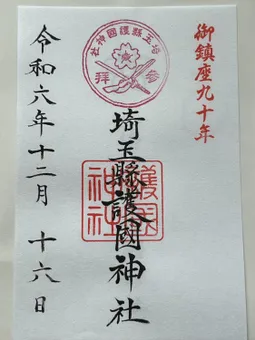 御鎮座九十年
埼玉縣護國神社
参拝
埼玉縣護國神社
護國神社
令和六年十二月十六日